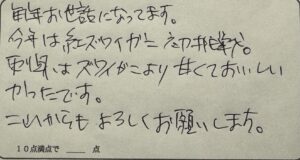 毎年お世話になってます。
今年は紅ズワイガニ初挑戦。
刺身はズワイガニより甘くておいしい
かったです。
これからもよろしくお願いします。
10点満点で　　　点